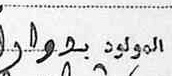 المولود بدوار